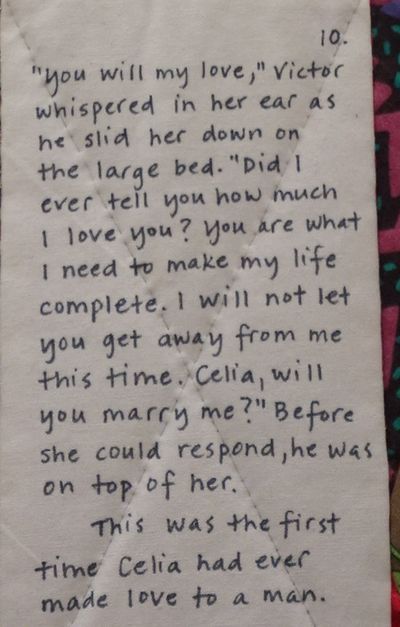 10.
"You will my love," Victor
whispered in her ear as
he slid her down on
the large bed. "Did I
ever tell you how much
I love you? You are what
I need to make my life
complete. I will not let
you get away from me
this time. Celia, will
you marry me?" Before
she could respond, he was
on top of her.
This was the first
time Celia had ever
made love to a man.